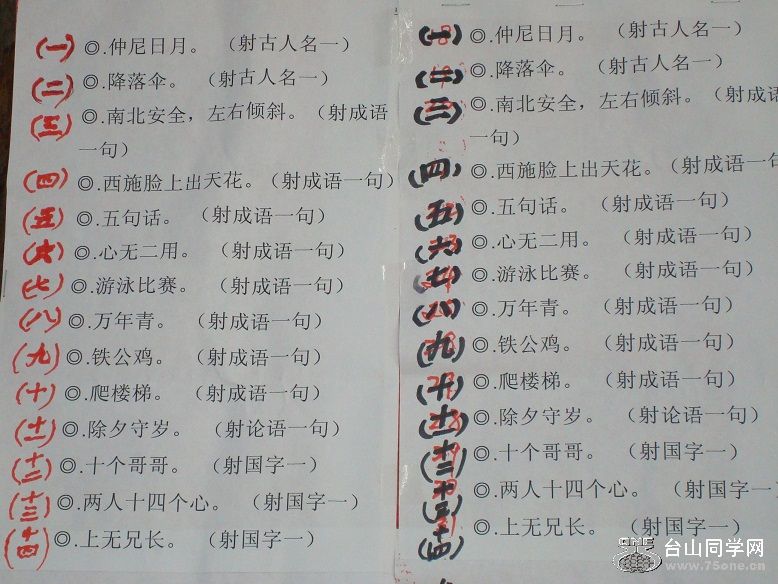 (一)◎.仲尼日月。(射古人名一)
(二)◎.降落伞。(射古人名一)
(三)◎.南北安全，左右倾斜。(射成语
一句)
(四)◎.西施脸上出天花。(射成语一句)
(五)◎.五句话。(射成语一句)
(六)◎.心无二用。(射成语一句)
(七)◎.游泳比赛。(射成语一句)
(八)◎.万年青。(射成语一句)
(九)◎.铁公鸡。(射成语一句)
(十)◎.爬楼梯。(射成语一句)
(十一)◎.除夕守岁。(射论语一句)
(十二)◎.十个哥哥。(射国字一)
(十三)◎.两人十四个心。(射国字一)
(十四)◎.上无兄长。(射国字一)
(一)◎.仲尼日月。(射古人名一)
(二)◎.降落伞。(射古人名一)
(三)◎.南北安全，左右倾斜。(射成语
一句)
(四)◎.西施脸上出天花。(射成语一句)
(五)◎.五句话。(射成语一句)
(六)◎.心无二用。(射成语一句)
(七)◎.游泳比赛。(射成语一句)
(八)◎.万年青。(射成语一句)
(九)◎.铁公鸡。(射成语一句)
(十)◎.爬楼梯。(射成语一句)
(十一)◎.除夕守岁。(射论语一句)
(十二)◎.十个哥哥。(射国字一)
(十三)◎.两人十四个心。(射国字一
(十四)◎.上无兄长。(射国字一)
台山同学网
www.75one.cn